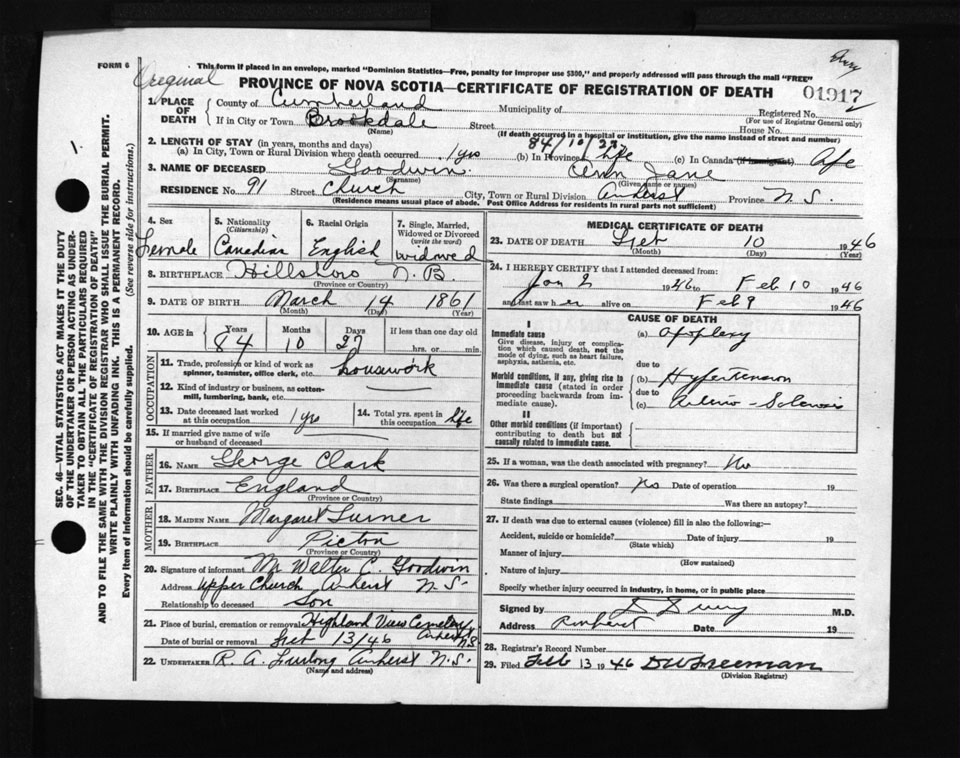 FORM 6
Original
This form if placed in an envelope, marked "Dominion Statistics—Free, penalty for improper use $300," and properly addressed will pass through the mail "FREE"
PROVINCE OF NOVA SCOTIA—CERTIFICATE OF REGISTRATION OF DEATH
01917
1. PLACE OF DEATH
County of Cumberland Municipality of
Registered No.
(For use of Registrar General only)
If in City or Town Brookdale Street House No.
(Name)
(If death occurred in a hospital or institution, give the name instead of street and number)
2. LENGTH OF STAY (in years, months and days) 84/10/27
(a) In City, Town or Rural Division where death occurred 1 yrs (b) In Province life (c) In Canada (if immigrant) life
3. NAME OF DECEASED Goodwin Ann Jane
(Surname) (Given name or names)
RESIDENCE No. 91 Street Church City, Town or Rural Division Amherst Province N.S.
(Residence means usual place of abode. Post Office Address for residents in rural parts not sufficient)
4. Sex
Female
5. Nationality
(Citizenship)
Canadian
6. Racial Origin
English
7. Single, Married, Widowed or Divorced
(write the word)
widowed
8. BIRTHPLACE Hillsboro N.B.
(Province or Country)
9. DATE OF BIRTH March 14 1861
(Month) (Day) (Year)
10. AGE in
Years Months Days If less than one day old
84 10 27 hrs. or min.
OCCUPATION
11. Trade, profession or kind of work as spinner, teamster, office clerk, etc. housework
12. Kind of industry or business, as cotton-mill, lumbering, bank, etc.
13. Date deceased last worked at this occupation 1 yrs
14. Total yrs. spent in this occupation life
15. If married give name of wife or husband of deceased
FATHER
16. NAME George Clark
17. BIRTHPLACE England
(Province or Country)
MOTHER
18. MAIDEN NAME Margaret Turner
19. BIRTHPLACE Pictou
(Province or Country)
20. Signature of informant Mr Walter C. Goodwin
Address Upper Church Amherst N.S.
Relationship to deceased Son
21. Place of burial, cremation or removal Highland View Cemetery Amherst N.S.
Date of burial or removal Feb 13/46
22. UNDERTAKER R. A. Furlong Amherst N.S.
(Name and address)
MEDICAL CERTIFICATE OF DEATH
23. DATE OF DEATH Feb 10 1946
(Month) (Day) (Year)
24. I HEREBY CERTIFY that I attended deceased from:
Jan 2 1946 to Feb 10 1946
and last saw her alive on Feb 9 1946
CAUSE OF DEATH
I
Immediate cause
Give disease, injury or complication which caused death, not the mode of dying, such as heart failure, asphyxia, asthenia, etc.
(a) Apoplexy
due to
Morbid conditions, if any, giving rise to immediate cause (stated in order proceeding backwards from immediate cause).
(b) Hypertension
due to
(c) Arterio-Sclerosis
II
Other morbid conditions (if important) contributing to death but not causally related to immediate cause.
25. If a woman, was the death associated with pregnancy? No
26. Was there a surgical operation? No Date of operation 19
State findings Was there an autopsy?
27. If death was due to external causes (violence) fill in also the following:—
Accident, suicide or homicide? Date of injury 19
(State which)
Manner of injury
(How sustained)
Nature of injury
Specify whether injury occurred in industry, in home, or in public place
Signed by M.D.
Address Amherst Date 19
28. Registrar's Record Number
29. Filed Feb 13 1946 D W Freeman
(Division Registrar)
1.
SEC. 46—VITAL STATISTICS ACT MAKES IT THE DUTY
OF THE UNDERTAKER OR PERSON ACTING AS UNDER-
TAKER TO OBTAIN ALL THE PARTICULARS REQUIRED
IN THE "CERTIFICATE OF REGISTRATION OF DEATH"
AND TO FILE THE SAME WITH THE DIVISION REGISTRAR WHO SHALL ISSUE THE BURIAL PERMIT.
WRITE PLAINLY WITH UNFADING INK. THIS IS A PERMANENT RECORD.
Every item of Information should be carefully supplied. (See reverse side for instructions.)